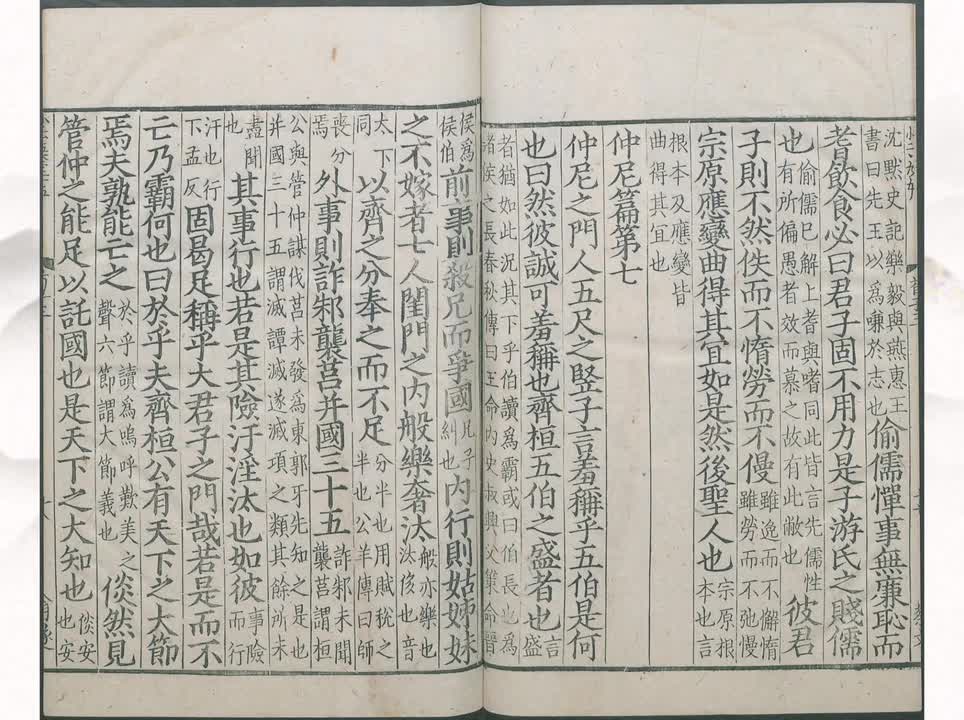 沈默史記樂毅與燕惠王
書曰先王以為慊於志也
偷儒憚事無廉恥而
耆飲食必曰君子固不用力是子游氏之賤儒
也
偷儒已解上耆與嗜同此皆言先儒性
有所偏愚者效而慕之故有此敝也
彼君
子則不然佚而不惰勞而不僈
雖逸而不懈惰
雖勞而不弛慢
宗原應變曲得其宜如是然後聖人也
宗原根
本也言
根本及應變皆
曲得其宜也
仲尼篇第七
仲尼之門人五尺之竪子言羞稱乎五伯是何
也曰然彼誠可羞稱也齊桓五伯之盛者也
言
盛
者猶如此況其下乎伯讀為霸或曰伯長也為
諸侯之長春秋傳曰王命內史叔興父策命晉
侯為
侯伯
前事則殺兄而爭國
兄子
糾也
內行則姑姊妹
之不嫁者七人閨門之內般樂奢汰
般亦樂也
汰侈也音
太下
同
以齊之分奉之而不足
分半也用賦稅之
半也公羊傳曰師
喪分
焉
外事則詐邾襲莒并國三十五
詐邾未聞
襲莒謂桓
公與管仲謀伐莒未發為東郭牙先知之是也
并國三十五謂滅譚滅遂滅項之類其餘所未
盡聞
也
其事行也若是其險汙淫汰也如彼
事險
而行
汙也行
下孟反
固曷足稱乎大君子之門哉若是而不
亡乃霸何也曰於乎夫齊桓公有天下之大節
焉夫孰能亡之
於乎讀為嗚呼歎美之
聲六節謂大節義也
倓然見
管仲之能足以託國也是天下之大知也
倓安
也安